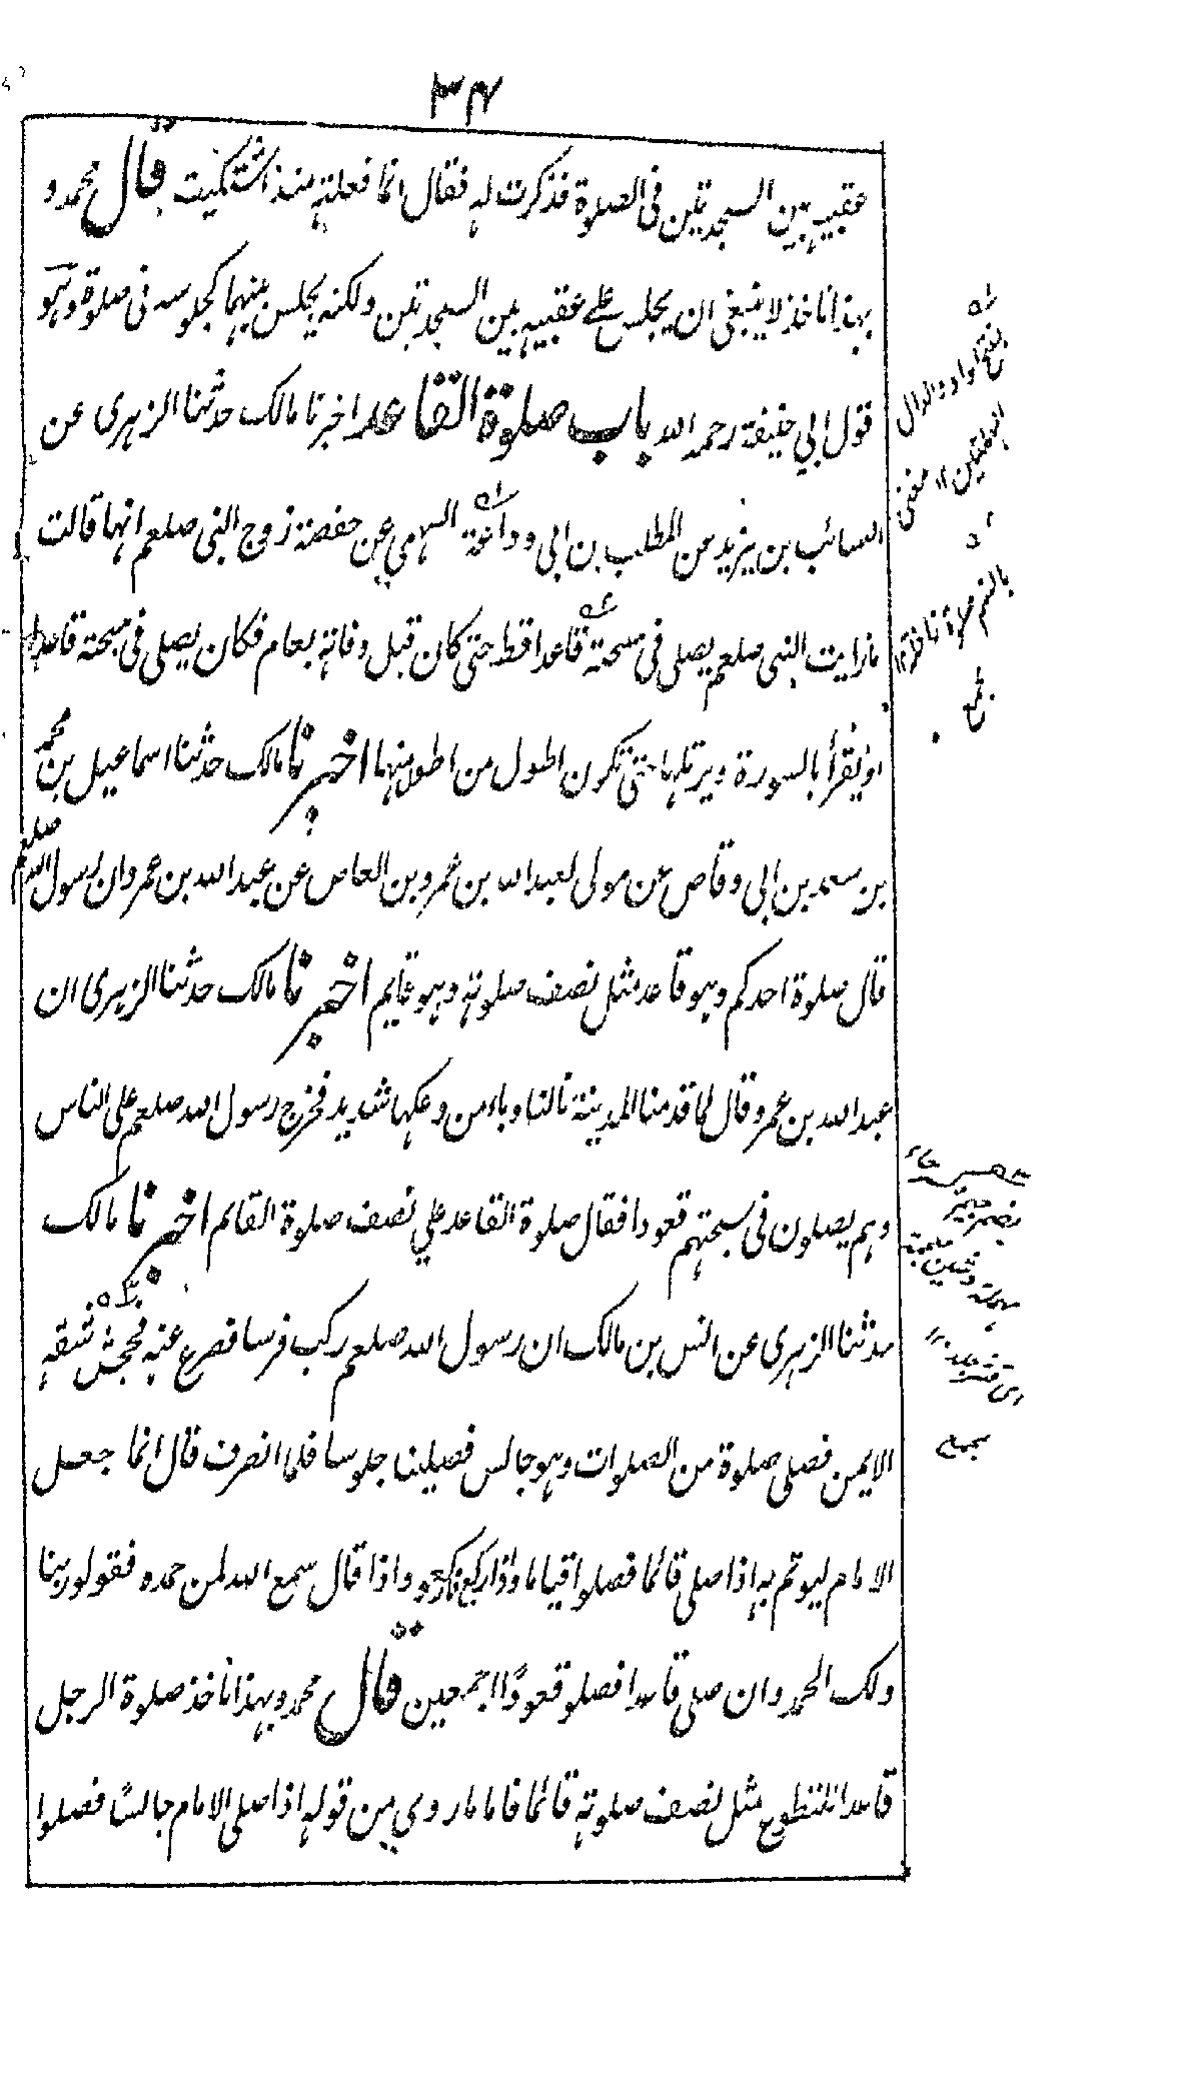 ٣٤
عقبيه بين السجدتين فى الصلوة فذكرت له فقال انما فعلته منذ اشتكيت قال محمد و
بهذا ناخذ لا ينبغى ان يجلس على عقبيه بين السجدتين ولكنه يجلس بينهما كجلوسه فى صلوة وهو
قول ابي حنيفة رحمه الله باب صلوة القاعد اخبرنا مالك حدثنا الزهرى عن
السائب بن يزيد عن المطلب بن ابى وداعة السهمي عن حفصة زوج النبى صلعم انها قالت
ما رايت النبى صلعم يصلى فى سبحته قاعدا قط حتى كان قبل وفاته بعام فكان يصلى فى سبحته قاعدا
ويقرأ بالسورة ويرتلها حتى تكون اطول من اطول منها اخبرنا مالك حدثنا اسماعيل بن محمد
بن سعد بن ابى وقاص عن مولى لعبد الله بن عمرو بن العاص عن عبد الله بن عمرو ان رسول الله صلعم
قال صلوة احدكم وهو قاعد مثل نصف صلوته وهو قايم اخبرنا مالك حدثنا الزهرى ان
عبد الله بن عمرو قال لما قدمنا المدينة نالنا وباء من وعكها شديد فخرج رسول الله صلعم على الناس
وهم يصلون فى سبحتهم قعودا فقال صلوة القاعد علي نصف صلوة القائم اخبرنا مالك
حدثنا الزهرى عن انس بن مالك ان رسول الله صلعم ركب فرسا فصرع عنه فجحش شقه
الايمن فصلى صلوة من الصلوات وهو جالس فصلينا جلوسا فلما انصرف قال انما جعل
الامام ليوتم به اذا صلى قائما فصلوا قياما واذا ركع فاركعوا واذا قال سمع الله لمن حمده فقولو ربنا
ولك الحمد وان صلى قاعدا فصلو قعودًا اجمعين قال محمد وبهذا ناخذ صلوة الرجل
قاعدا للتطوع مثل نصف صلوته قائما فاما ما روي من قوله اذا صلى الامام جالسًا فصلوا
بفتح الواو والدال
المهملتين ١٢ مغنى
بالضم صلوة نافلة ١٢
مجمع